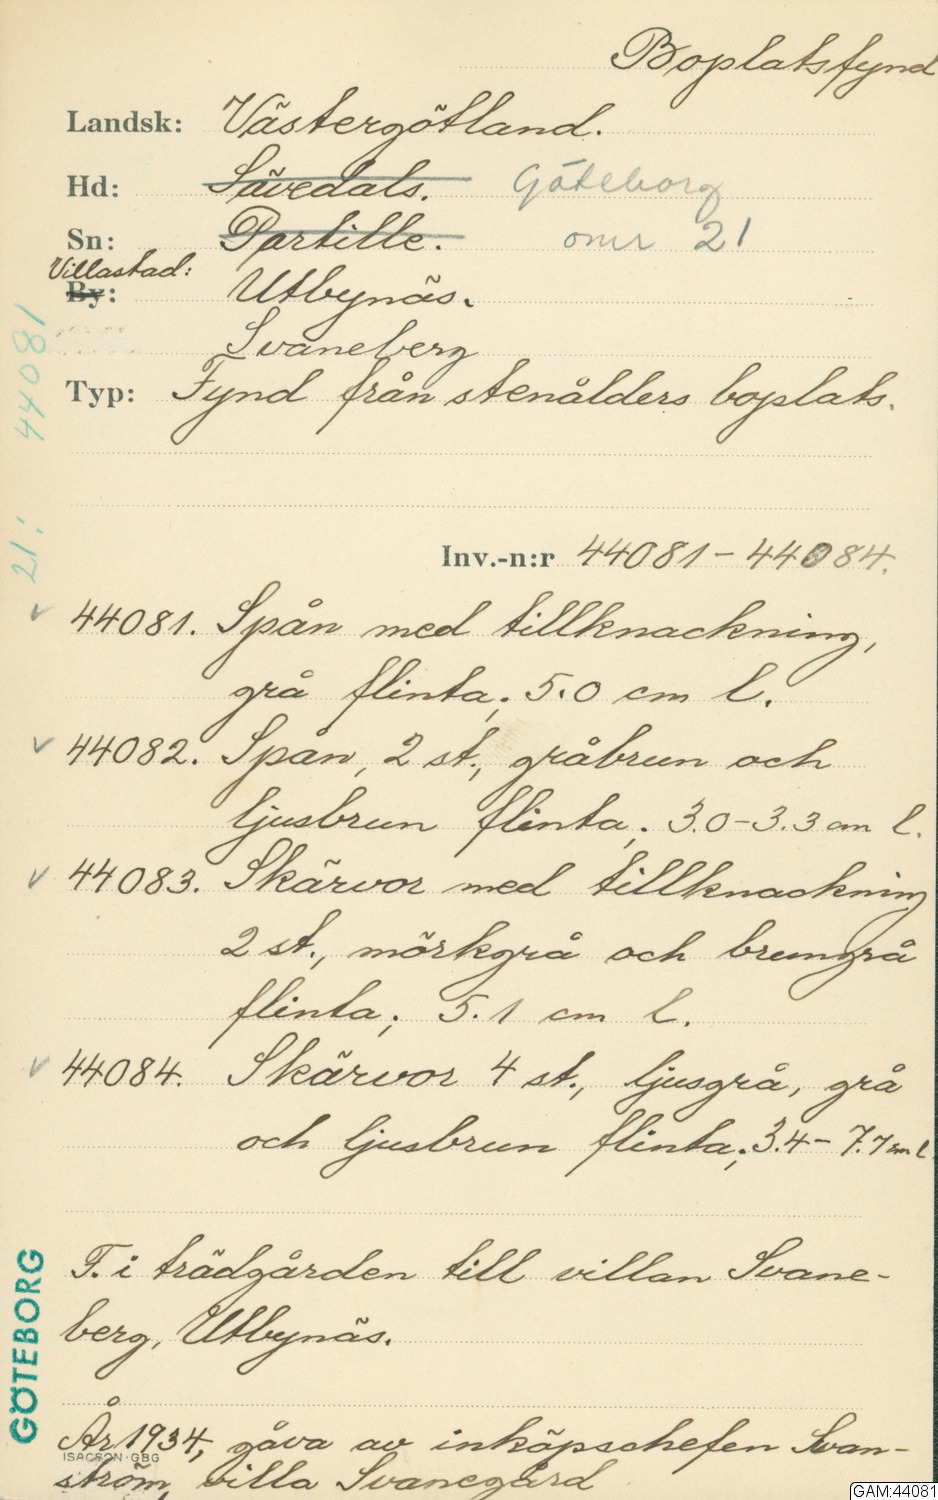 Boplatsfynd
Landsk: Västergötland.
Hd: Sävedals. Göteborg
Sn: Partille. omr 21
Villastad:
By: Utbynäs.
Svaneberg
Typ: Fynd från stenålders boplats.
21: 44081
Inv.-n:r 44081-44084.
44081. Spån med tillknackning,
grå flinta; 5.0 cm l.
44082. Spån, 2 st., gråbrun och
ljusbrun flinta; 3.0-3.3 cm l.
44083. Skärvor med tillknackning
2 st., mörkgrå och brungrå
flinta; 5.1 cm l.
44084. Skärvor 4 st., ljusgrå, grå
och ljusbrun flinta; 3.4-7.7 cm l
F. i trädgården till villan Svane-
berg, Utbynäs.
GÖTEBORG
År 1934, gåva av inköpschefen Svan-
ISACSON·GBG
ström, villa Svanegård
GAM:44081